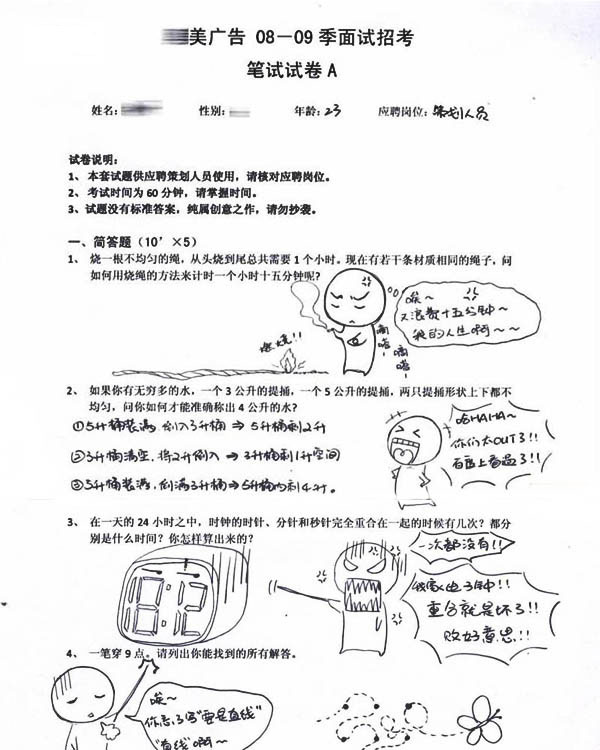 美广告 08－09 季面试招考
笔试试卷 A
姓名： 性别： 年龄：23 应聘岗位：策划人员
试卷说明：
1、 本套试题供应聘策划人员使用，请核对应聘岗位。
2、 考试时间为 60 分钟，请掌握时间。
3、试题没有标准答案，纯属创意之作，请勿抄袭。
一、简答题（10’×5）
1、 烧一根不均匀的绳，从头烧到尾总共需要 1 个小时。现在有若干条材质相同的绳子，问
如何用烧绳的方法来计时一个小时十五分钟呢？
唉~
又浪费十五分钟~
我的人生啊~~
燃烧!!
嘀嗒
嘀嗒
2、 如果你有无穷多的水，一个 3 公升的提捅，一个 5 公升的提捅，两只提捅形状上下都不
均匀，问你如何才能准确称出 4 公升的水？
①5升桶装满 倒入3升桶⇒ 5升桶剩2升
②3升桶清空，将2升倒入 ⇒ 3升桶剩1升空间
③5升桶装满，倒满3升桶⇒5升桶内剩4升。
哈HAHA~
你们太OUT了!!
百度上看过了!!
3、 在一天的 24 小时之中，时钟的时针、分针和秒针完全重合在一起的时候有几次？都分
别是什么时间？你怎样算出来的？
一次都没有!!
我家电子钟!!
重合就是坏了!!
败好意思!!
18:12
4、 一笔穿 9 点。请列出你能找到的所有解答。
唉~
你忘了写“要是直线”
“直线”啊~